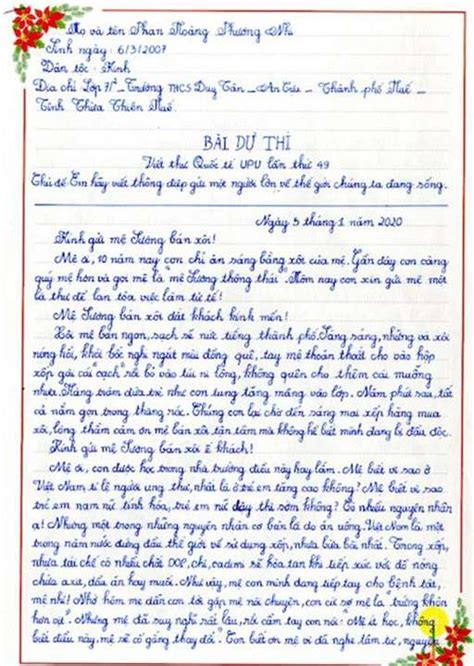 Họ và tên Phan Hoàng Phương Nhi
Sinh ngày: 6/3/2007
Dân tộc: Kinh
Địa chỉ Lớp 7/² _ Trường THCS Duy Tân _ An Cựu _ Thành phố Huế _
Tỉnh Thừa Thiên Huế.
BÀI DỰ THI
Viết thư Quốc tế UPU lần thứ 49
Chủ đề Em hãy viết thông điệp gửi một người lớn về thế giới chúng ta đang sống.
Ngày 5 tháng 1 năm 2020
Kính gửi mệ Sương bán xôi!
Mệ ơi, 10 năm nay con chỉ ăn sáng bằng xôi của mệ. Gần đây con càng
quý mệ hơn và gọi mệ là "mệ Sương thông thái". Hôm nay con xin gửi mệ một
lá thư để lan tỏa việc làm tử tế!
Mệ Sương bán xôi đắt khách kính mến!
Xôi mệ bán ngon, sạch sẽ nức tiếng thành phố. Sáng sáng, những vá xôi
nóng hổi, khói bốc nghi ngút mùi đồng quê, tay mệ thoăn thoắt cho vào hộp
xốp gói cái "cạch" rồi bỏ vào túi ni lông, không quên cho thêm cái muỗng
nhựa. Hàng trăm đứa trẻ như con tung tăng mang vào lớp. Năm phút sau, tất
cả nằm gọn trong thùng rác. Chúng con lại chờ đến sáng mai xếp hàng mua
xôi, lòng thầm cảm ơn mệ bán xôi tận tâm mà không hề biết mình đang bị đầu độc.
Kính gửi mệ Sương bán xôi ế khách!
Mệ ơi, con được học trong nhà trường điều này hay lắm. Mệ biết vì sao ở
Việt Nam tỉ lệ người ung thư, nhất là ở trẻ em tăng cao không? Mệ biết vì sao
trẻ em nam nữ tính hóa, trẻ em nữ dậy thì sớm không? Có nhiều nguyên nhân
ạ! Nhưng một trong những nguyên nhân cơ bản là do ăn uống. Việt Nam là một
trong năm nước đứng đầu thế giới về sử dụng xốp, nhựa bừa bãi nhất. Trong xốp,
nhựa tái chế có nhiều chất DOP, chì, cadimi sẽ hòa tan khi tiếp xúc với đồ nóng
chứa axit, dầu ăn hay muối. Như vậy, mệ con mình đang tiếp tay cho bệnh tật,
mệ nhỉ! Nhớ hôm mẹ dẫn con tới gặp mệ nói chuyện, con cứ sợ mệ la "trứng khôn
hơn vịt". Nhưng mệ đã suy nghĩ rất lâu, rồi cầm tay con nói: "Mệ ít học, không
biết điều này. Mệ sẽ cố gắng thay đổi". Con biết ơn mệ vì đã nghe tâm tư, nguyện